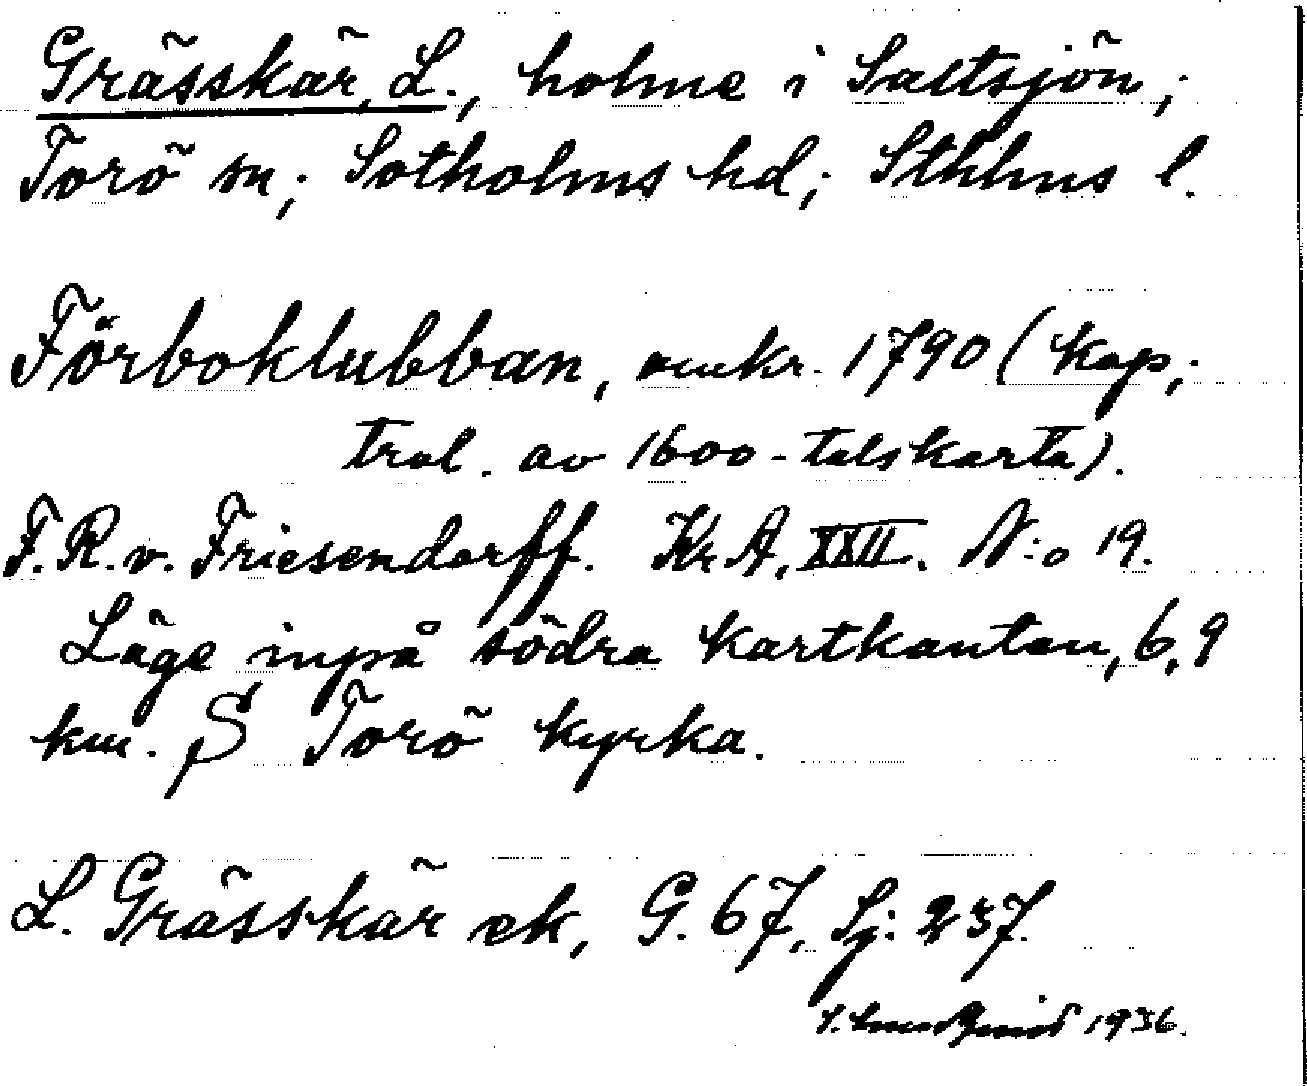 Grässkär, L., holme i Saltsjön;
Torö sn; Sotholms hd; Sthlms l.
Förboklubban, omkr. 1790 (kop.;
trol. av 1600-talskarta).
F.R. v. Friesendorff. Kr A, XXII. N:o 19.
Läge inpå södra kartkanten, 6,9
km. S Torö kyrka.
L. Grässkär ek, G. 67, Sj: 257.
1936.